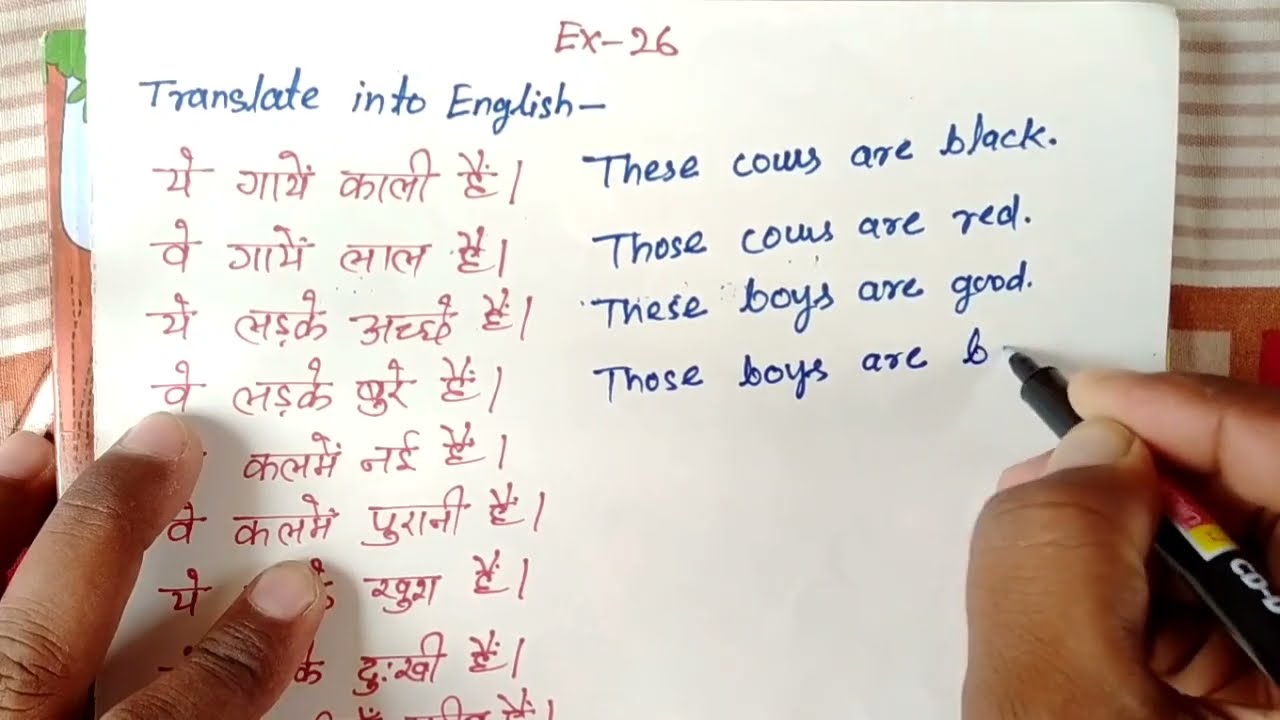 Ex-26
Translate into English-
ये गायें काली हैं। These cows are black.
वे गायें लाल हैं। Those cows are red.
ये लड़के अच्छे हैं। These boys are good.
वे लड़के बुरे हैं। Those boys are b
कलमें नई हैं।
वे कलमें पुरानी हैं।
ये खुश हैं।
दुःखी हैं।
CD-